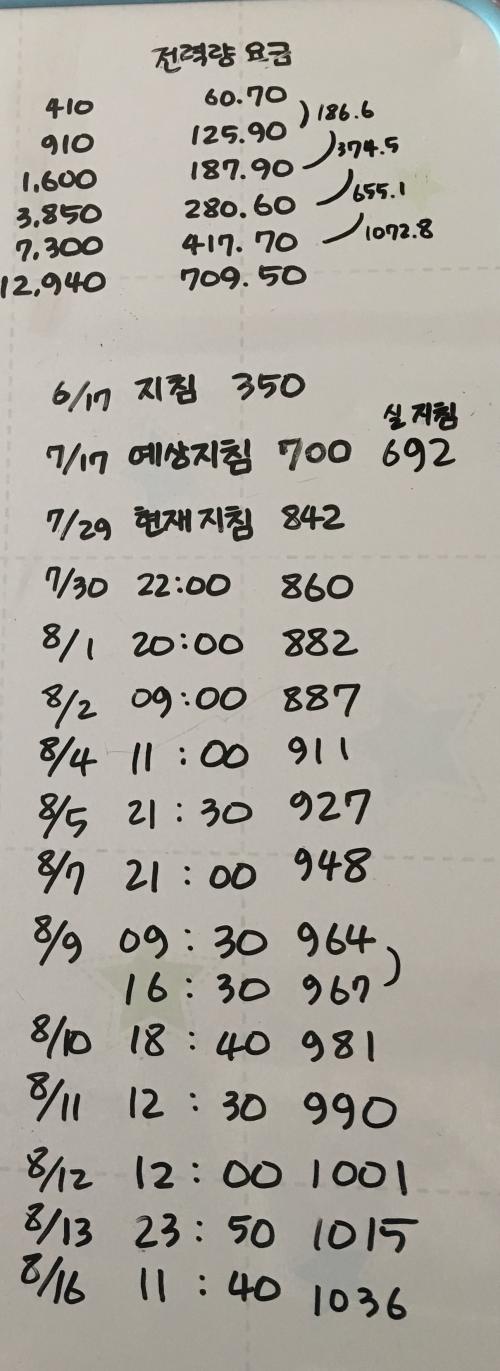 전력량 요금
410 60.70
186.6
910 125.90
374.5
1,600 187.90
655.1
3,850 280.60
1072.8
7,300 417.70
12,940 709.50
6/17 지침 350
실지침
7/17 예상지침 700 692
7/29 현재지침 842
7/30 22:00 860
8/1 20:00 882
8/2 09:00 887
8/4 11:00 911
8/5 21:30 927
8/7 21:00 948
8/9 09:30 964
16:30 967
8/10 18:40 981
8/11 12:30 990
8/12 12:00 1001
8/13 23:50 1015
8/16 11:40 1036